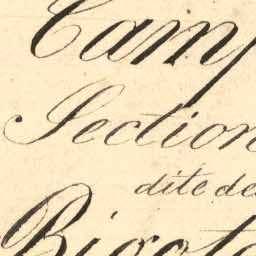 Camp
Section
dite de
Bigot